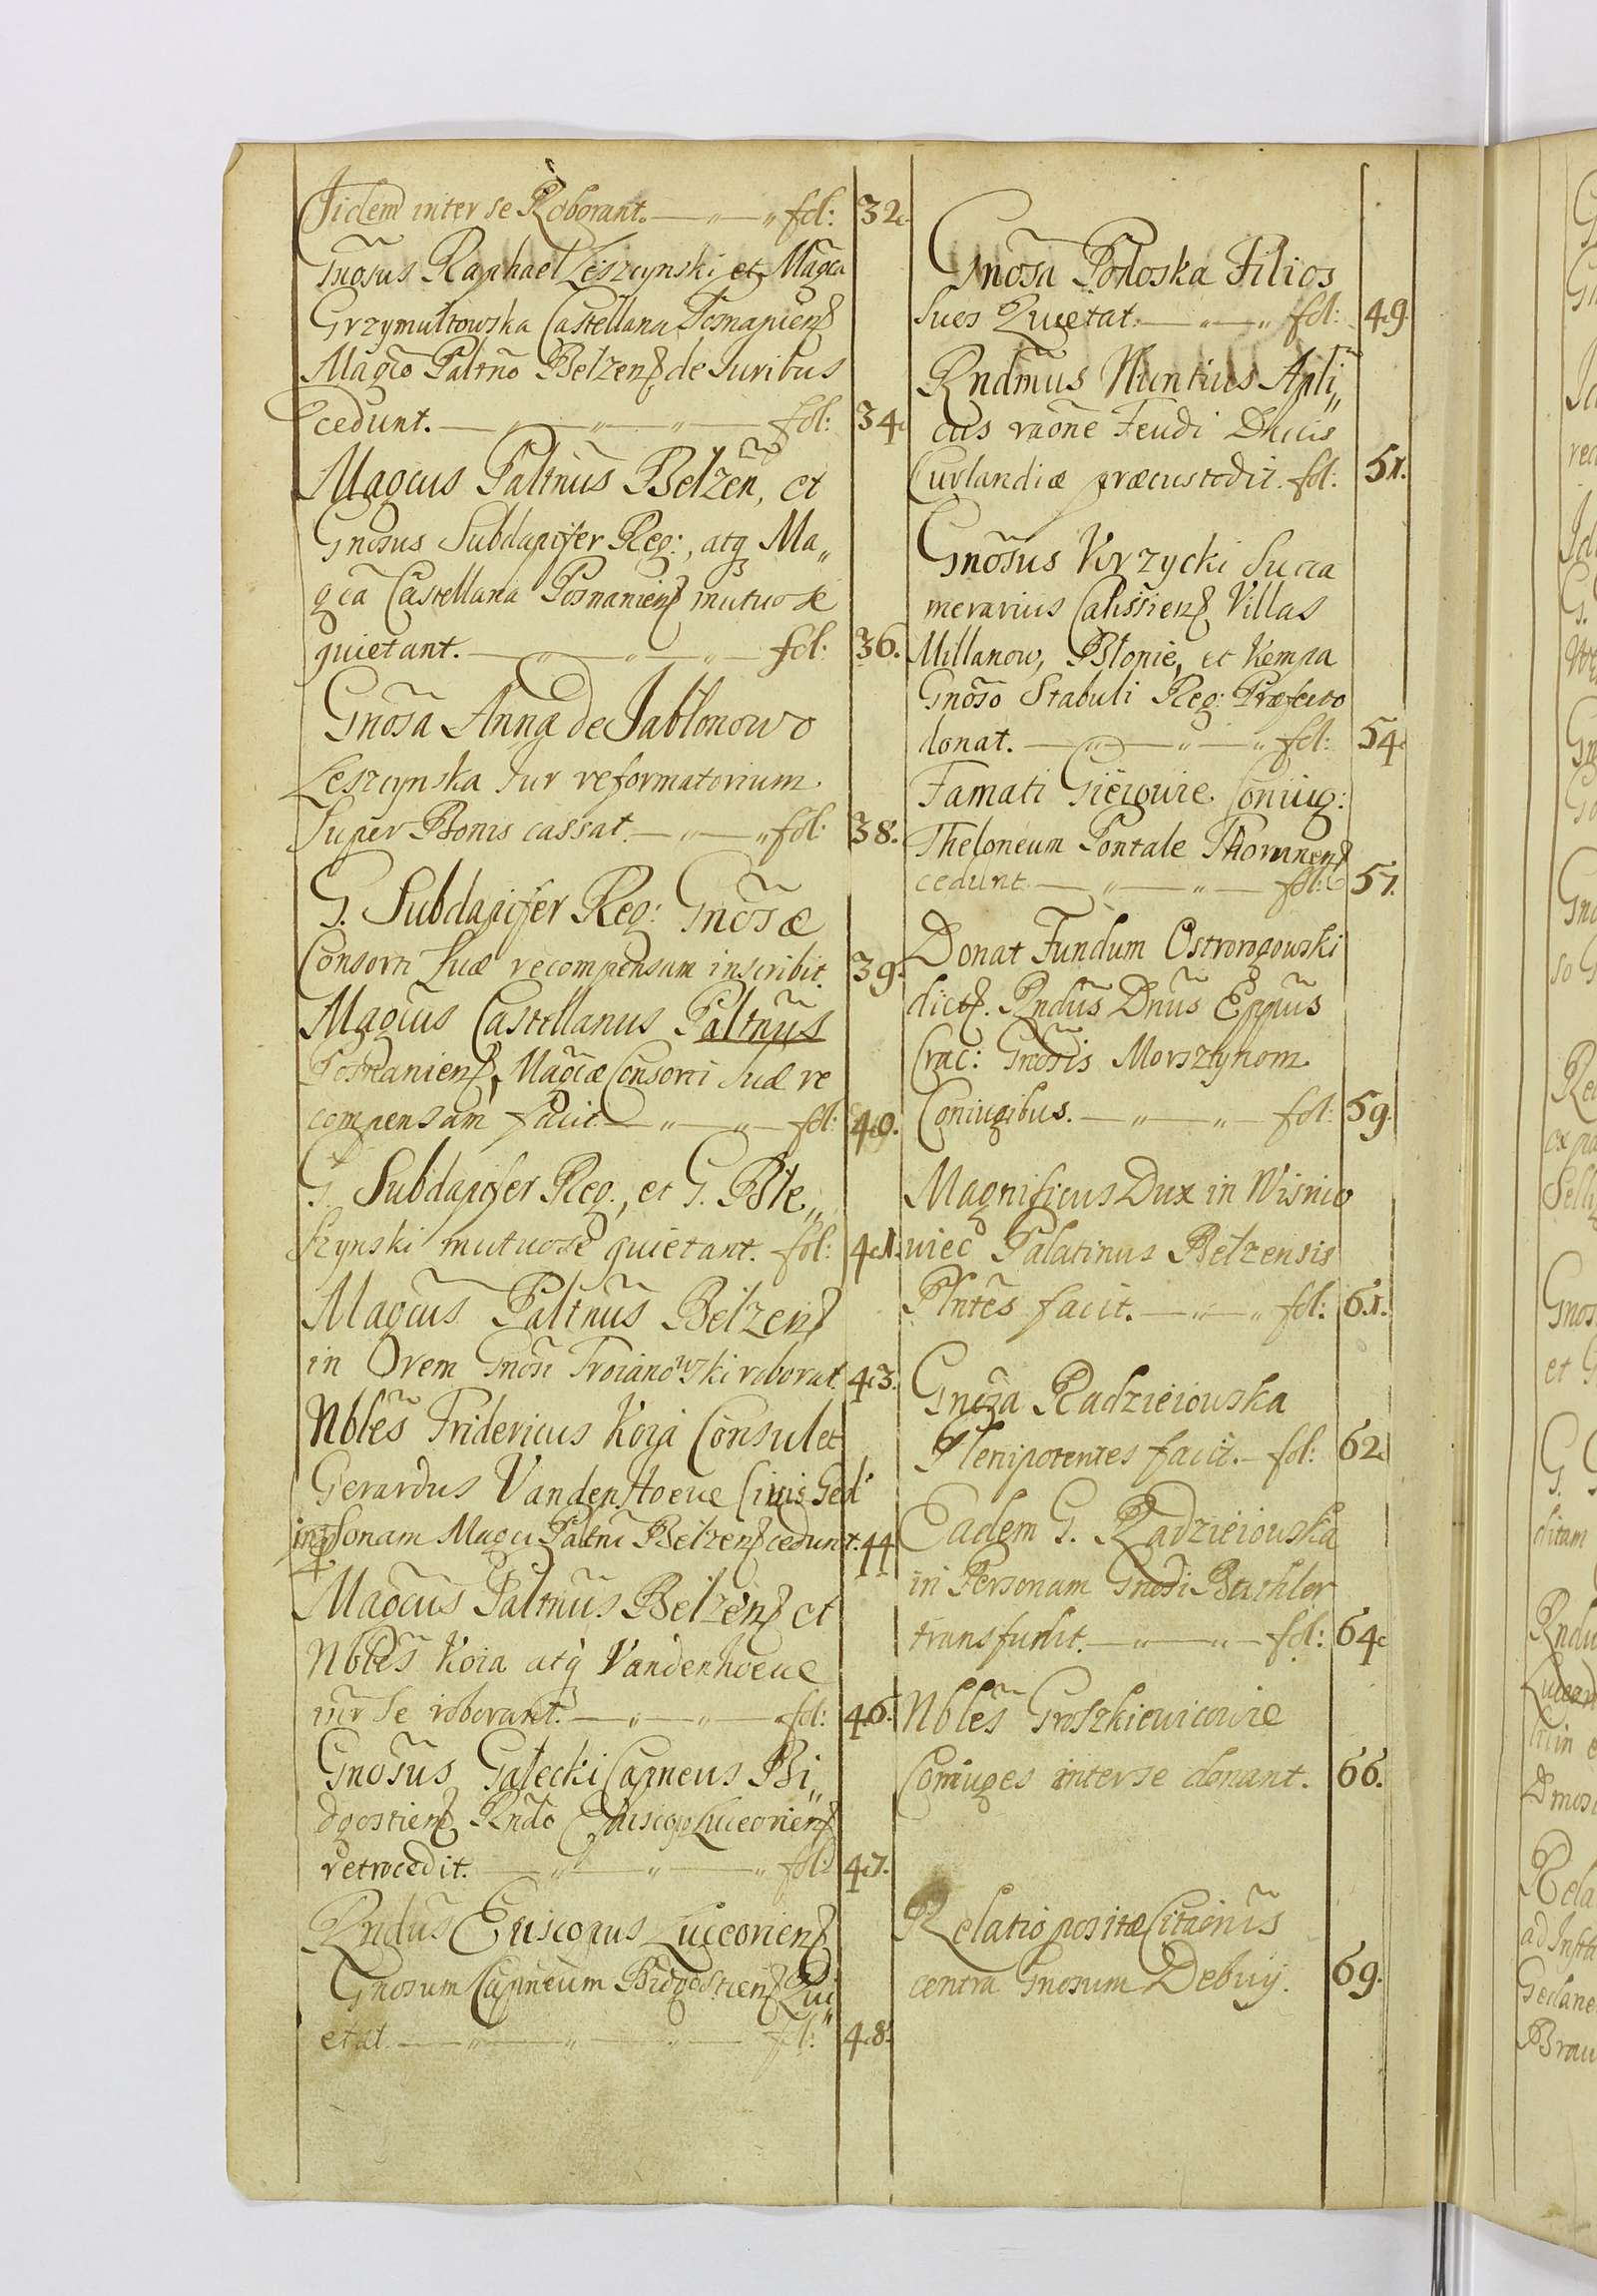 Iidem inter se Roborant. — „ — „ fol: 32.
Gnõsus Raphael Leszcynski et Magca
Grzymułtowska Castellana Posnaniens
Magco Paltño Bełzens de Iuribus
cedunt. — „ — „ — „ — fol: 34.
Magcus Paltñus Bełzeñ, et
Gnosus Subdapifer Reg:, atq Ma„
gca Castellana Posnaniens mutuo se
quietant. — „ — „ — „ — fol: 36.
Gnõsa Anna de Jabłonowo
Leszcynska Iur reformatorium
Super Bonis cassat. — „ — „ fol: 38.
G. Subdapifer Reg: Gnõsæ
Consorti Suæ recompensam inscribit. 39.
Magcus Castellanus Paltñus
Posnaniens, Magcæ Consorti Suæ re
compensam facit — „ — „ — fol: 40.
G. Subdapifer Reg:, et G. Ble„
szynski mutuo se quietant. fol: 41.
Magcus Paltñus Bełzens
in Orem Gnosi Troianowski roborat 43.
Nblẽs Fridericus Koia Consul et
Gerardus VandenHoeue Ciuis Ged:
in psonam Magci Paltñi Bełzens cedunt. 44
Magcus Paltñus Bełzens et
Nblẽs Koia atq Vandenhoeue
inr se roborant. — „ — „ — fol: 46.
Gnõsus Gałecki Capneus Bi„
dgostiens Rndo Episcopo Luceoriens
retrocedit. — „ — „ — „ fol: 47.
Rndus Episcopus Luceoriens
Gnosum Capneum Bidgostiens Qui„
etat — „ — „ — „ — fol: 48.
Gnõsa Podoska Filios
Suos Quietat. — „ — „ fol: 49.
Rndmus Nuntius Apli„
cus raõne Feudi Ducis
Curlandiæ præcustodit. fol: 51.
Gnõsus Krzycki Succa
merarius Calissiens Villas
Millanow, Błonie, et Kempa
Gnõso Stabuli Reg: Præfecto
donat. — „ — „ — „ fol: 54
Famati Coniug:
Theloneum Pontale Thorunens
cedunt. — „ — „ — fol: 57.
Donat Fundum Ostrorogowski
dict. Rndũs Dnũs Eppũs
Crac: Gnosis Morsztynom
Coniugibus. — „ — „ — fol: 59.
Magnificus Dux in Wisnio
wiec Palatinus Bełzensis
Plntẽs facit. — „ — „ fol: 61.
Gnosa Radzieiowska
Plenipotentes facit. — fol: 62
Eadem G. Radzieiowska
in Personam Gnosi
transfundit. — „ — „ — fol: 64
Nblẽs Groszkiewicowie
Coniuges inter se donant. 66.
Relatio positæ Citaõnis
contra Gnosum Debuy. 69.